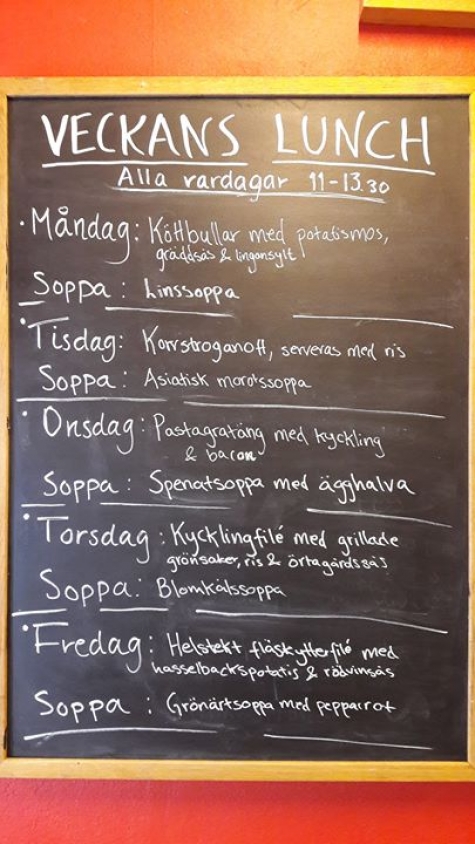 VECKANS LUNCH
Alla vardagar 11-13.30
• Måndag: Köttbullar med potatismos,
gräddsås & lingonsylt
Soppa: Linssoppa
• Tisdag: Korvstroganoff, serveras med ris
Soppa: Asiatisk morotssoppa
• Onsdag: Pastagratäng med kyckling
& bacon
Soppa: Spenatsoppa med ägghalva
• Torsdag: Kycklingfilé med grillade
grönsaker, ris & örtagårdssås
Soppa: Blomkålssoppa
• Fredag: Helstekt fläskytterfilé med
hasselbackspotatis & rödvinsås
Soppa: Grönärtsoppa med pepparrot